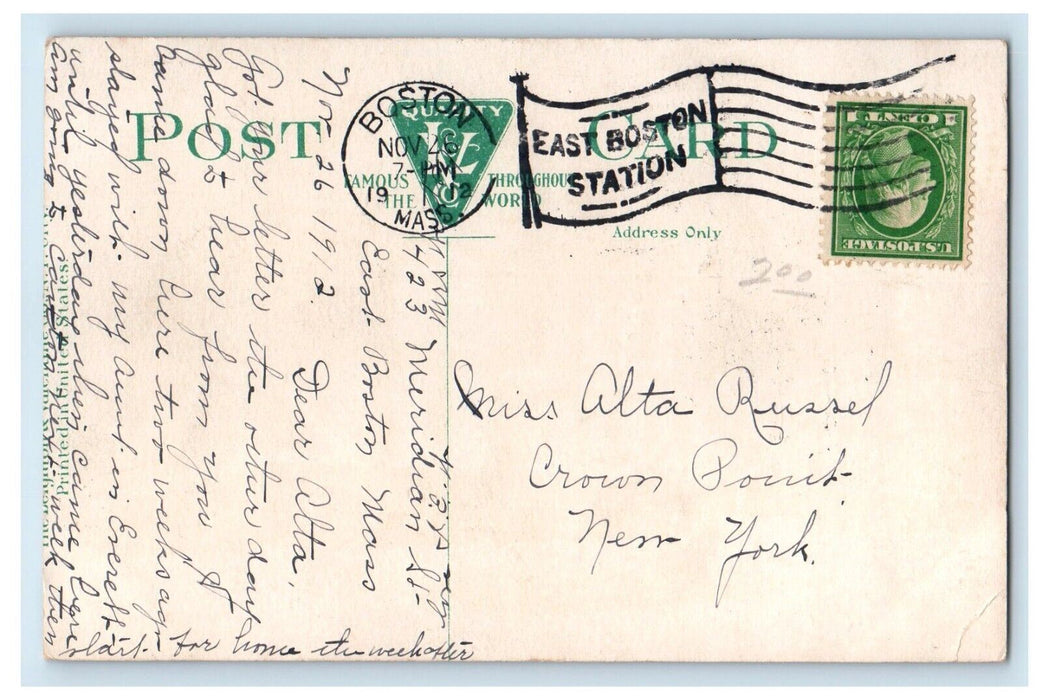 POST CARD
QUALITY
FAMOUS THROUGHOUT
THE WORLD
Address Only
BOSTON
NOV 26
7-PM
1912
MASS.
EAST BOSTON
STATION
1 CENT 1
U.S. POSTAGE
200
Miss Alta Russel
Crown Point
New York.
423 Meridian St-
East Boston Mass
Nov 26 1912 Dear Alta,
Got your letter the other day
glad to hear from you
came down here two weeks ago
stayed with my Aunt in Everett
until yesterday when came here
am going to Canton next week then
start for home the week after
Printed in United States